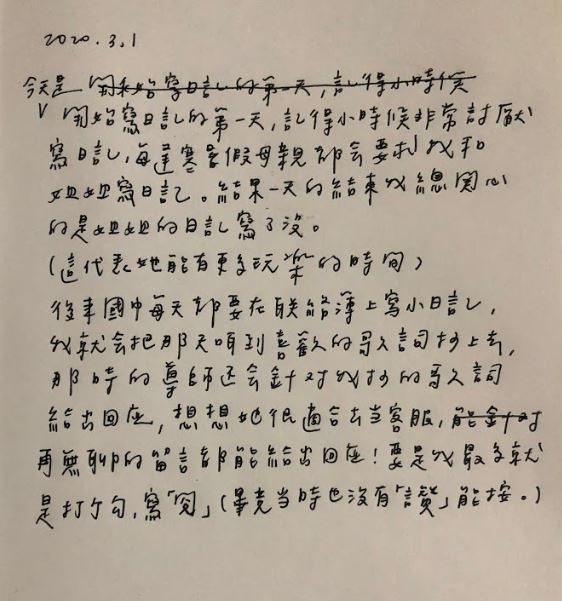 2020.3.1
今天是 開未始寫日記的第一天,記得小時候
V 開始寫日記的第一天,記得小時候非常討厭
寫日記,每逢寒暑假母親都会要求我和
姐姐寫日記。結果一天的結束我總関心
的是姐姐的日記寫了沒。
(這代表她能有更多玩樂的時間)
後來國中每天都要在联絡簿上寫小日記,
我就会把那天唱到喜歡的歌詞抄上去,
那時的導師还会針对我抄的歌詞
給出回应,想想她很適合去当客服,能針对
再無聊的留言都能給出回应!要是我最多就
是打个勾,寫「閱」(畢竟当時也沒有「讚」能按。)